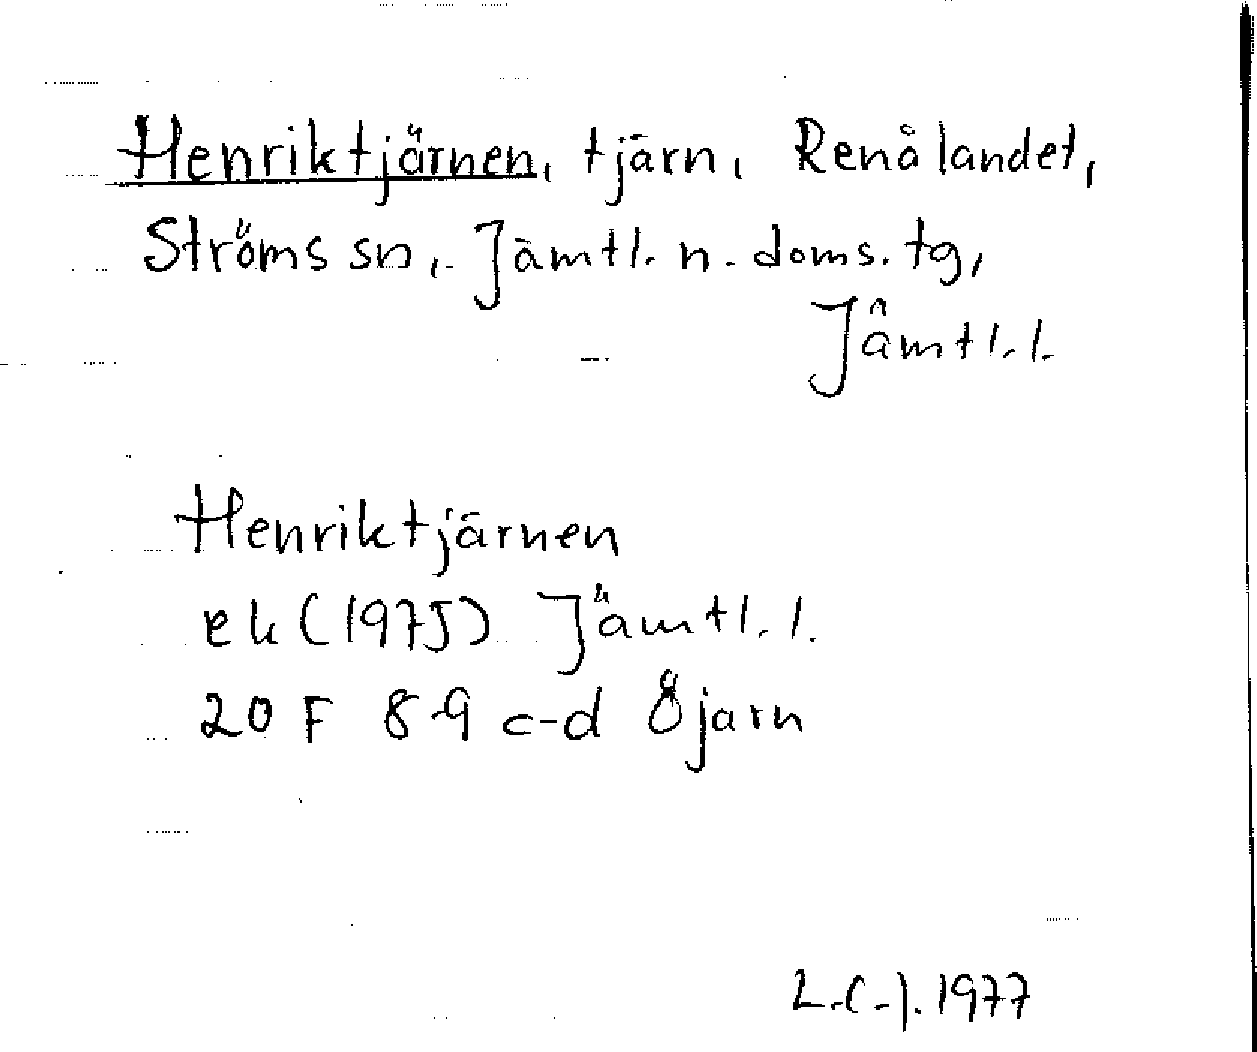 Henriktjärnen, tjärn, Renålandet,
Ströms sn, Jämtl. n. doms. tg,
Jämtl. l.
Henriktjärnen
ek (1975) Jämtl. l.
20 F 8-9 c-d Öjarn
1977